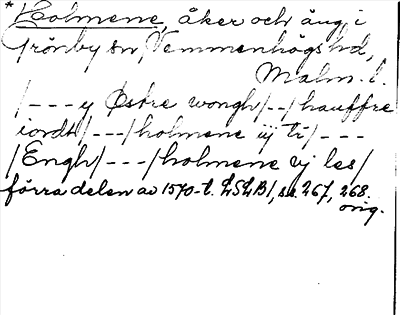 * Holmene, åker och äng, i
Grönby sn, Vemmenhögs hd,
Malm. l.
/---y Østre wongh/--/hauffre
iordt/---/holmene iij ti/---
/Engh/---/holmene vj les/
förra delen av 1570-t. LSLB1, s. 267, 268.
orig.